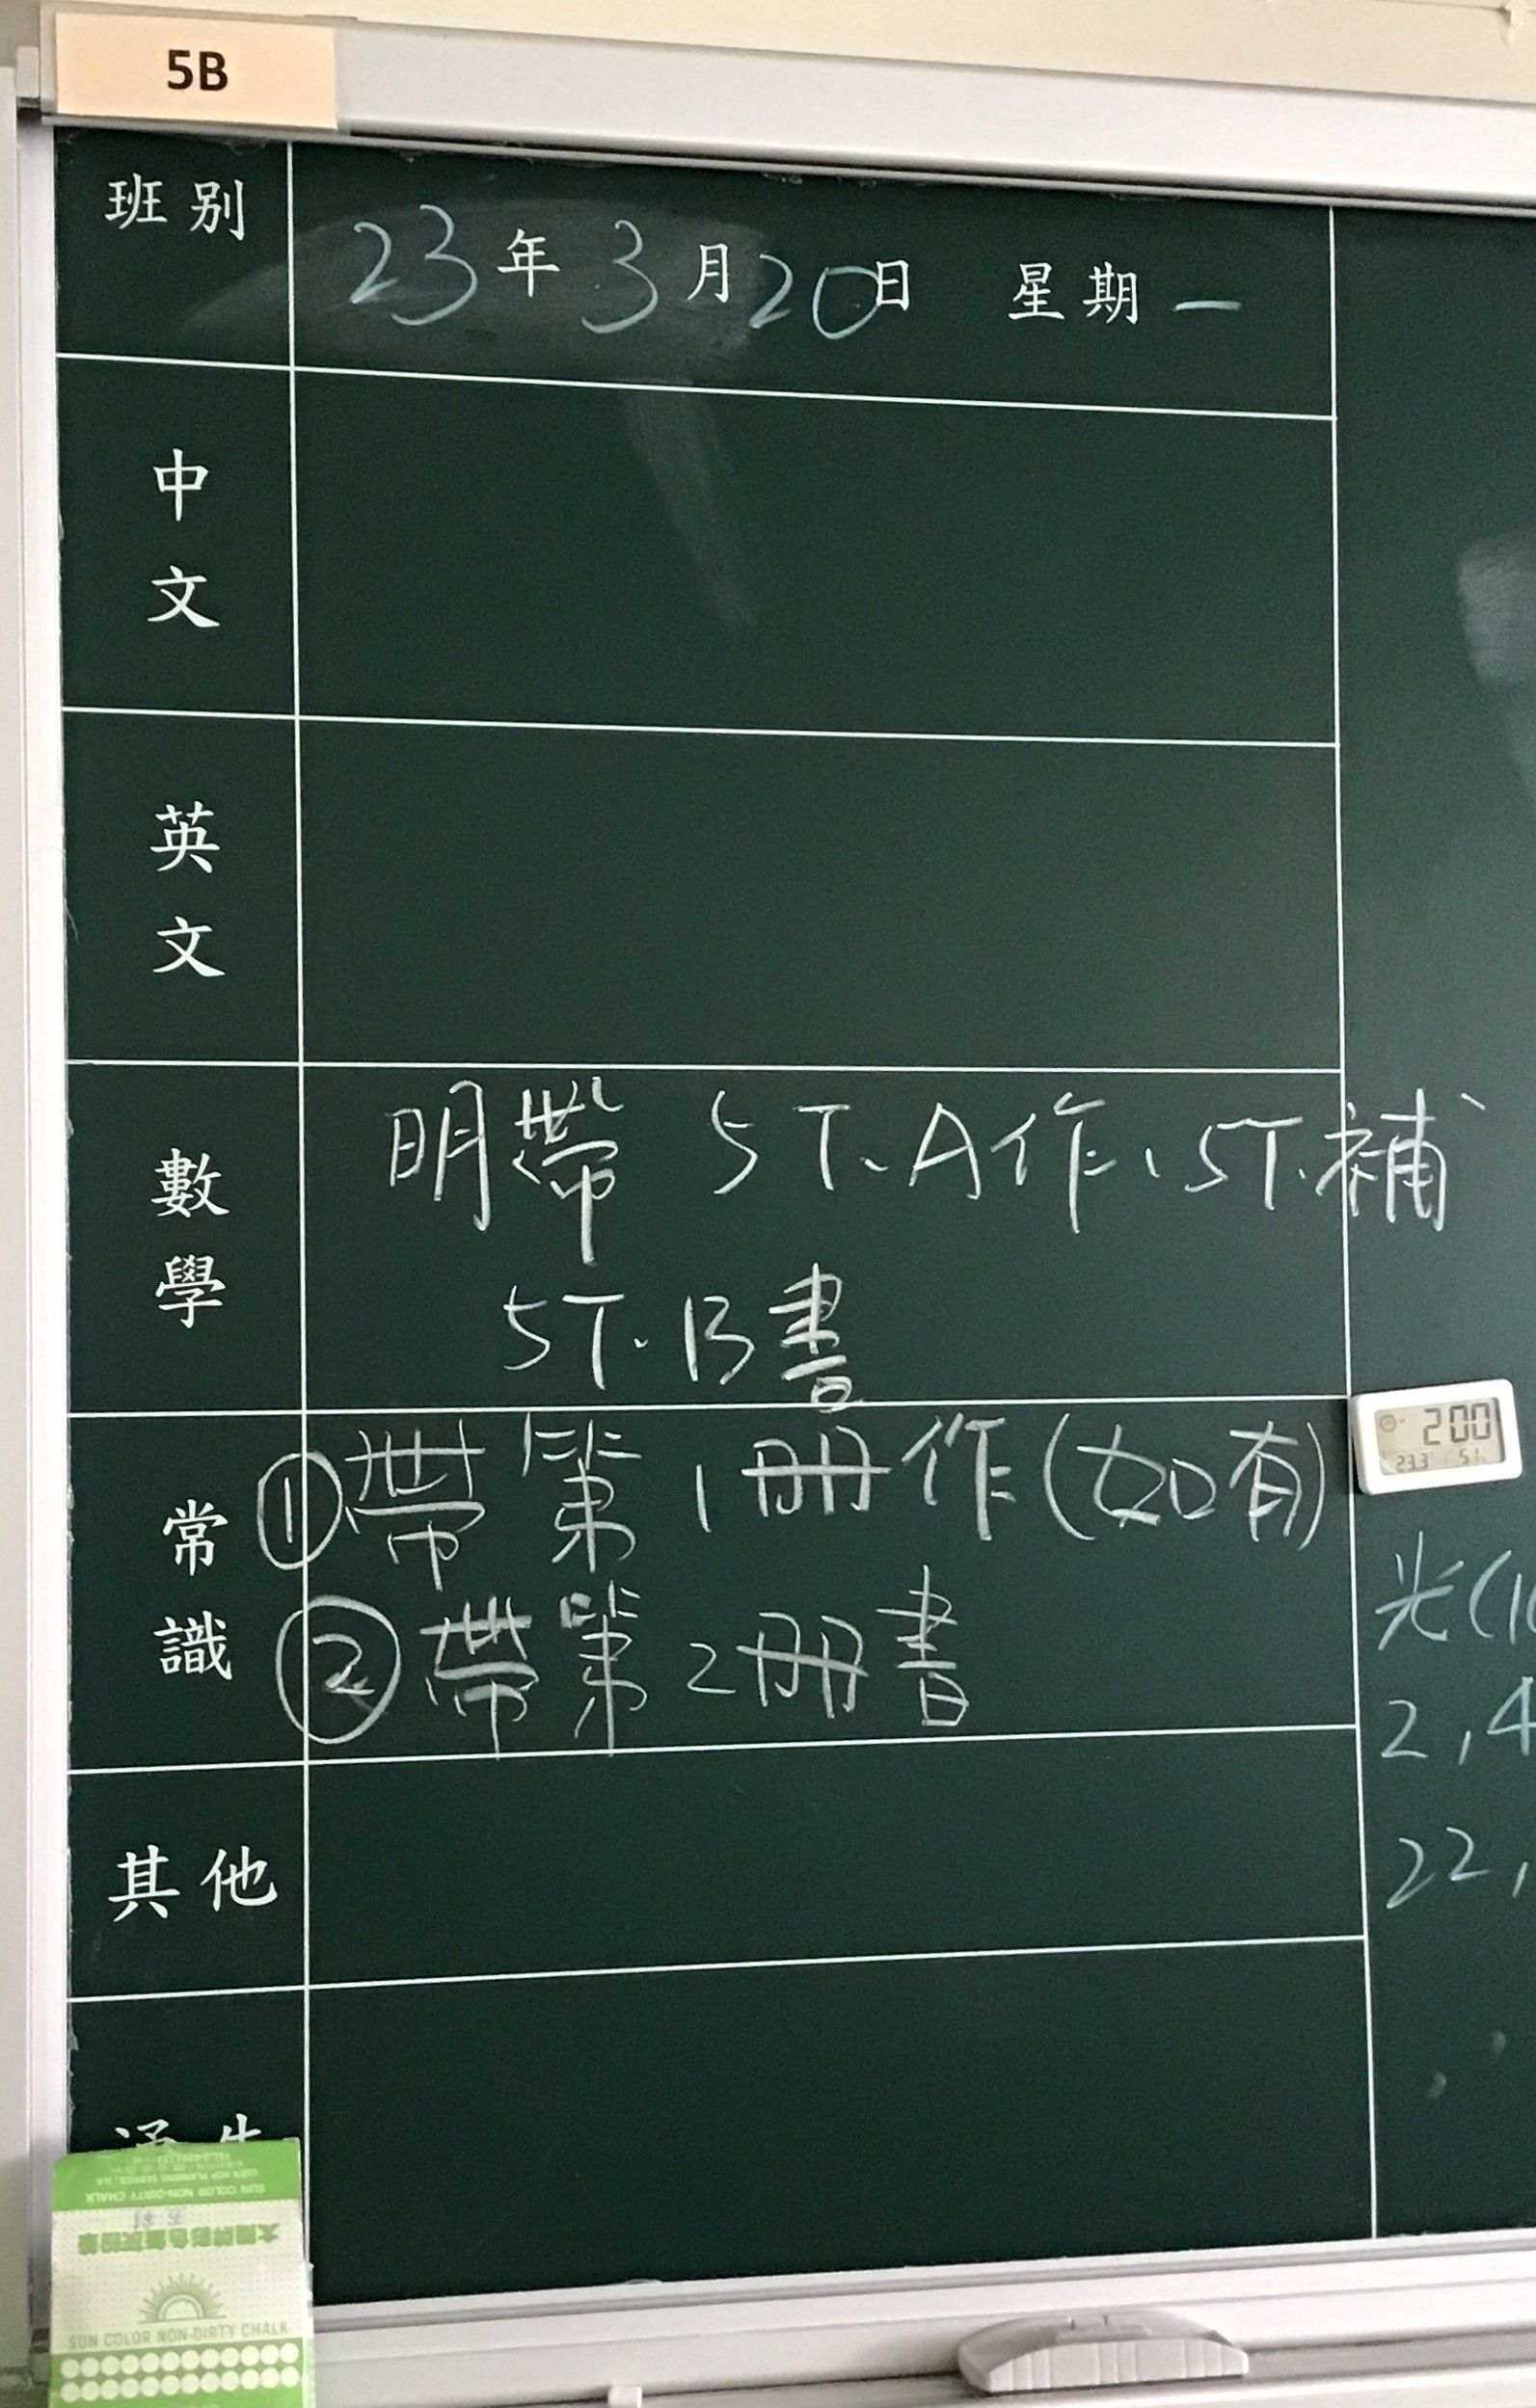 5B
班別
23年3月20日 星期一
中文
英文
數學
明帶 5下A作、5下補
5下B書
常識
①帶第1册作(如有)
②帶第2册書
其他
200
23.3 51
光(1
2,4
22,
SUN COLOR NON-DIRTY CHALK
太陽牌彩色無灰粉筆
SUN COLOR NON-DIRTY CHALK